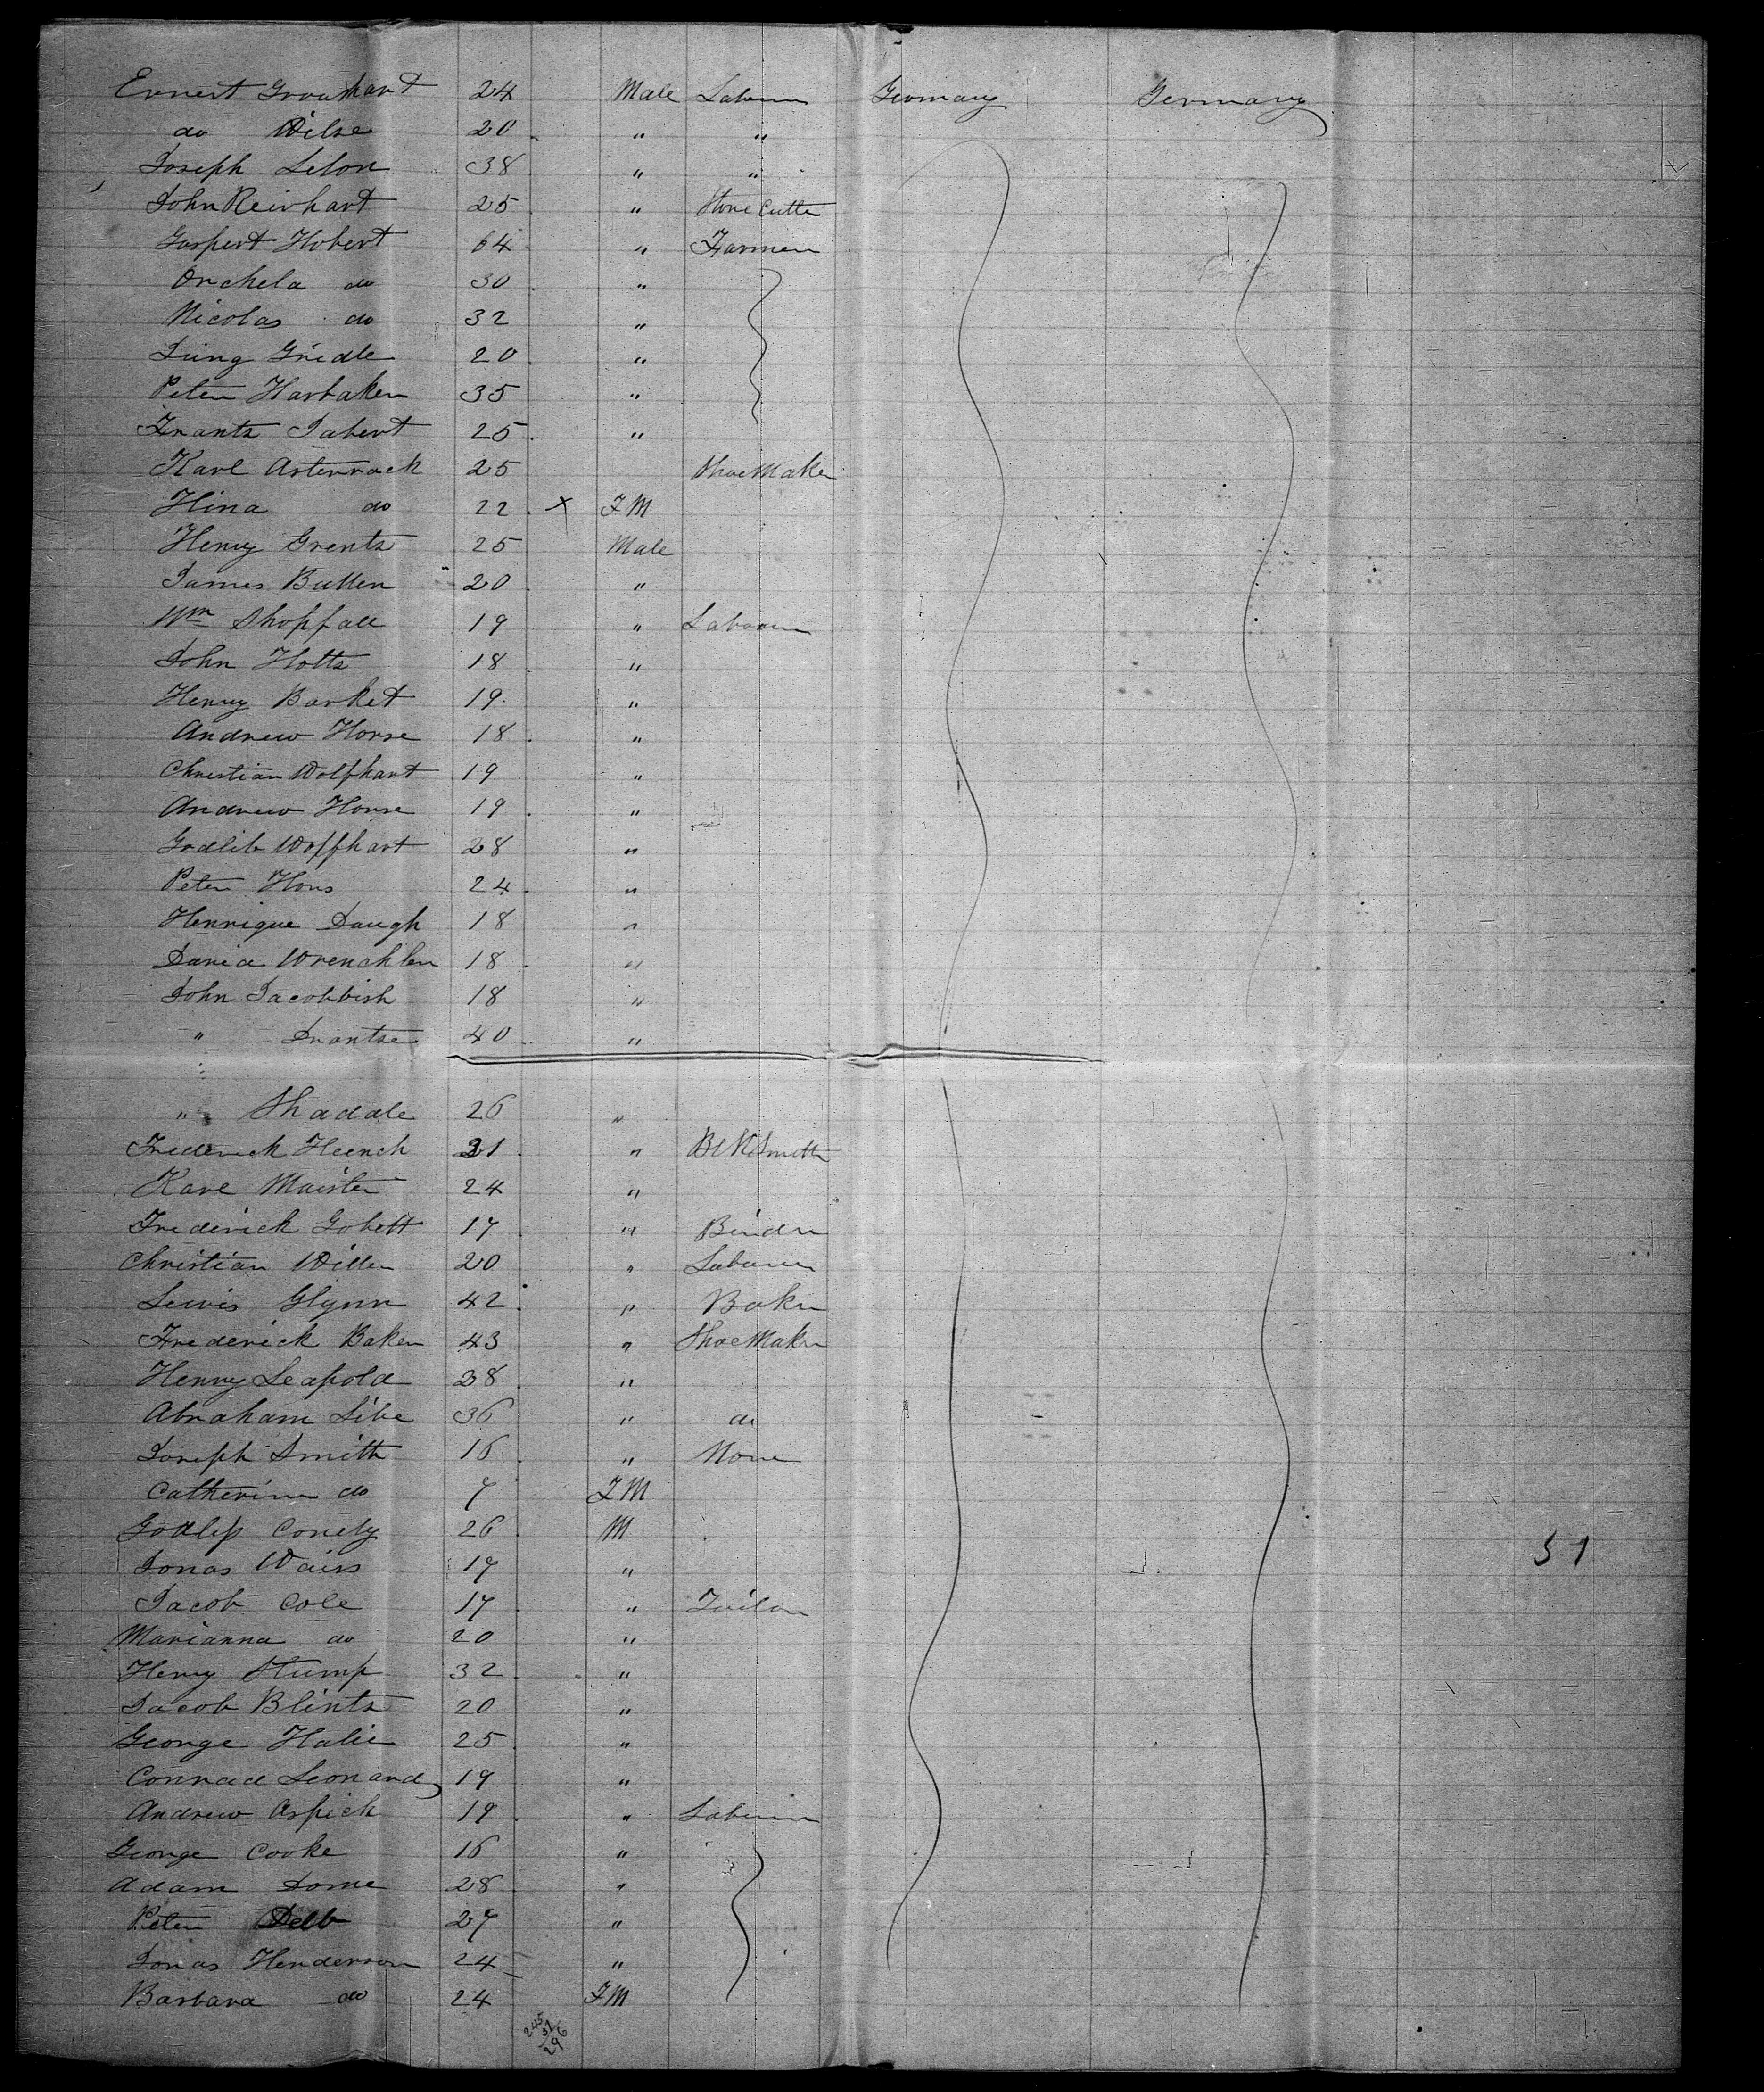 Ernest Grouthart 24 Male Laborer Germany Germany
do Wilse 20 " "
Joseph Lebon 38 " "
John Reinhart 25 " Stone Cutter
Gaspert Hobert 64 " Farmer
Orchela do 30 "
Nicolas do 32 "
Jung Gridle 20 "
Peter Harbaker 35 "
Frantz Jabert 25 "
Karl Asterrock 25 ShoeMaker
Hina do 22 x FM
Henry Grentz 25 Male
James Butler 20 "
Wm Shopfall 19 " Laborer
John Holtz 18 "
Henry Barket 19 "
Andrew Horse 18 "
Christian Wolfhart 19 "
Andrew Horse 19 "
Godlib Wolfhart 28 "
Peter Hons 24 "
Henrique Daugh 18 "
David Wrenchler 18 "
John Jacobbish 18 "
" Drantze 40 "
" Shadale 26 "
Frederick Heench 31 " BlKSmith
Karl Maister 24 "
Frederick Gobett 17 " Binder
Christian Willer 20 " Laborer
Lewis Glynn 42 " Baker
Frederick Baker 43 " ShoeMaker
Henry Leapold 38 "
Abraham Libe 36 " do
Joseph Smith 16 " None
Catherine do 7 FM
Godlip Conely 26 M
Jonas Wairs 17 "
Jacob Cole 17 " Tailor
Marianna do 20 "
Henry Stump 32 "
Jacob Blintz 20 "
George Halie 25 "
Conrad Leonard 19 "
Andrew Aspich 19 " Laborer
George Cooke 16 "
Adam Dome 28 "
Peter Delb 27 "
Jonas Henderson 24 "
Barbara do 24 FM
51
245
51
296